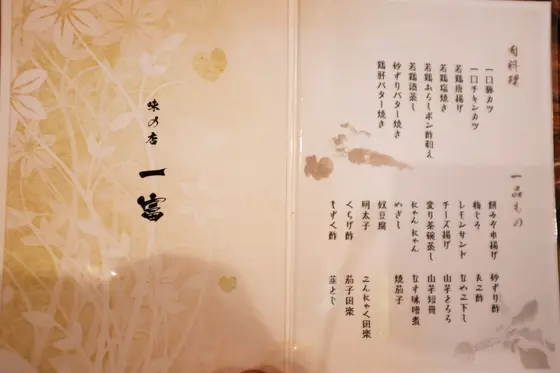 肉料理
一口豚カツ
一口チキンカツ
若鶏唐揚げ
若鶏塩焼き
若鶏おろしポン酢和え
若鶏酒蒸し
砂ずりバター焼き
鶏肝バター焼き
一品もの
梅じそ
レモンサンド
チーズ揚げ
変り茶碗蒸し
にゃんにゃん
めざし
奴豆腐
明太子
くらげ酢
もずく酢
砂ずり酢
山芋とろろ
山芋短冊
なす味噌煮
焼茄子
こんにゃく田楽
茄子田楽
味の店
一富